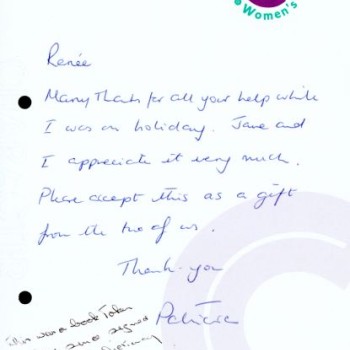 Women's
Renée
Many Thanks for all your help while
I was on holiday. Jane and
I appreciate it very much.
Please accept this as a gift
from the two of us.
Thank you
Patricia
This was a book token
and signed